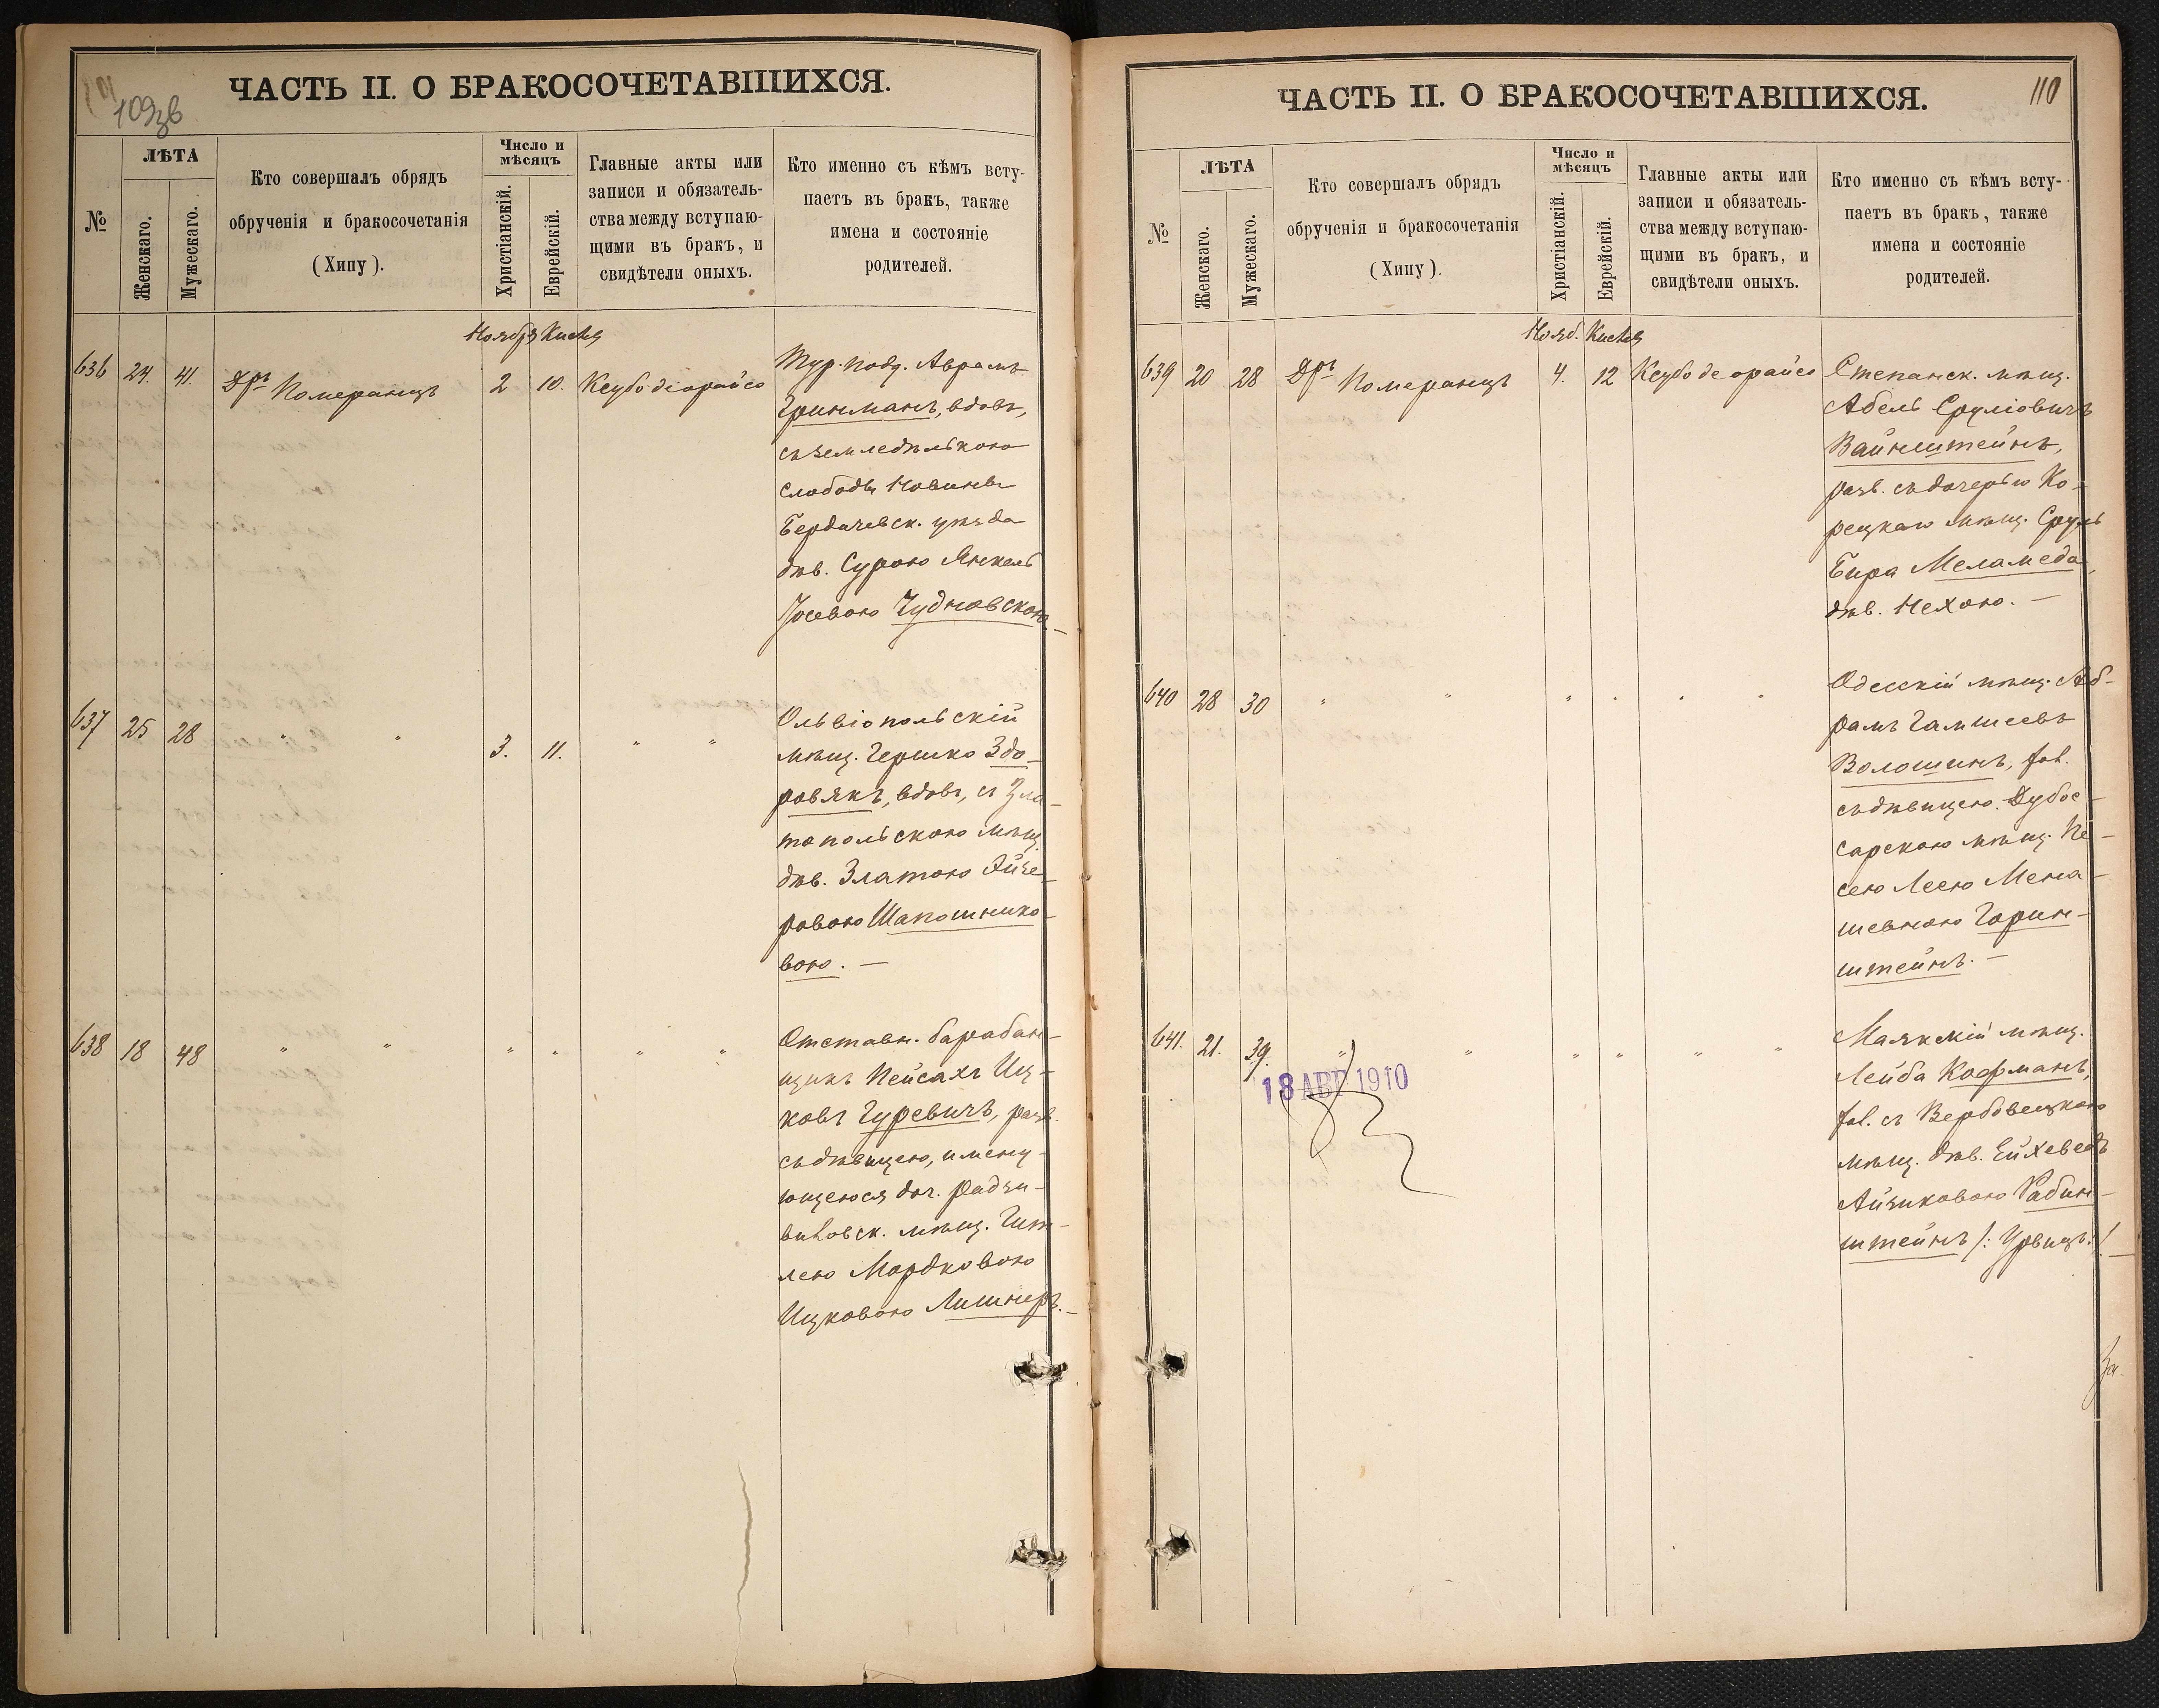 109зв
ЧАСТЬ II. О БРАКОСОЧЕТАВШИХСЯ.
№
ЛѢТА
Женскаго.
Мужескаго.
Кто совершалъ обрядъ
обрученія и бракосочетанія
(Хипу).
Число и
мѣсяцъ
Христіанскій.
Еврейскій.
Главные акты или
записи и обязатель-
ства между вступаю-
щими въ бракъ, и
свидѣтели оныхъ.
Кто именно съ кѣмъ всту-
паетъ въ бракъ, также
имена и состояніе
родителей.
Ноября Кислв
636 24. 41. Дръ Померанцъ 2 10. Ксубо деорайсо
Тур. подд. Аврамъ
Гринманъ, вдовъ,
съ земледѣлькою
слободы Новины
Бердичевск. уѣзда
дѣв. Сурою Янкель
Іосевою Чудновскою.—
637 25 28 " " 3. 11. " "
Ольвіопольскій
мѣщ. Гершко Здо-
ровякъ, вдовъ, съ Зла-
топольскою мѣщ.
дѣв. Златою Ойзе-
ровою Шапошнико-
вою. —
638 18 48 " " " " " "
Отставн. барабан-
щикъ Пейсахъ Иц-
ковъ Гуревичъ, разв.
съ дѣвицею, имену-
ющеюся доч. Радзи-
виловск. мѣщ. Гит-
лею Мордковою
Ицковою Лишнеръ.—
110
ЧАСТЬ II. О БРАКОСОЧЕТАВШИХСЯ.
№
ЛѢТА
Женскаго.
Мужескаго.
Кто совершалъ обрядъ
обрученія и бракосочетанія
(Хипу).
Число и
мѣсяцъ
Христіанскій.
Еврейскій.
Главные акты или
записи и обязатель-
ства между вступаю-
щими въ бракъ, и
свидѣтели оныхъ.
Кто именно съ кѣмъ всту-
паетъ въ бракъ, также
имена и состояніе
родителей.
Нояб. Кислв
639 20 28 Дръ Померанцъ 4. 12 Ксубо деорайсо
Степанск. мѣщ.
Абель Сруліовичъ
Вайнштейнъ,
разв. съ дочерью Ко-
рецкаго мѣщ. Сруль
Бира Меламеда,
дѣв. Нехою. —
640 28 30 " " " " " "
Одесскій мѣщ. Аб-
рамъ Гамшеевъ
Волошинъ, хол.
съ дѣвицею Дубос-
сарскою мѣщ. Пе-
сею Леею Мена-
шевною Горин-
штейнъ. —
641. 21. 39. " " " " " "
Маякскій мѣщ.
Лейба Кофманъ,
хол. съ Вербовецкою
мѣщ. дѣв. Ейхеведъ
Айзиковою Рабин-
штейнъ /: Урвицъ :/ —
18 АВГ 1910